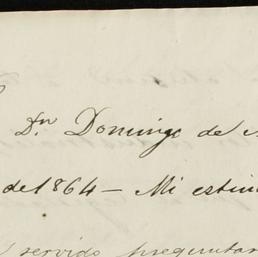 Dn Domingo de
del 1864 - Mi estim
servido preguntar